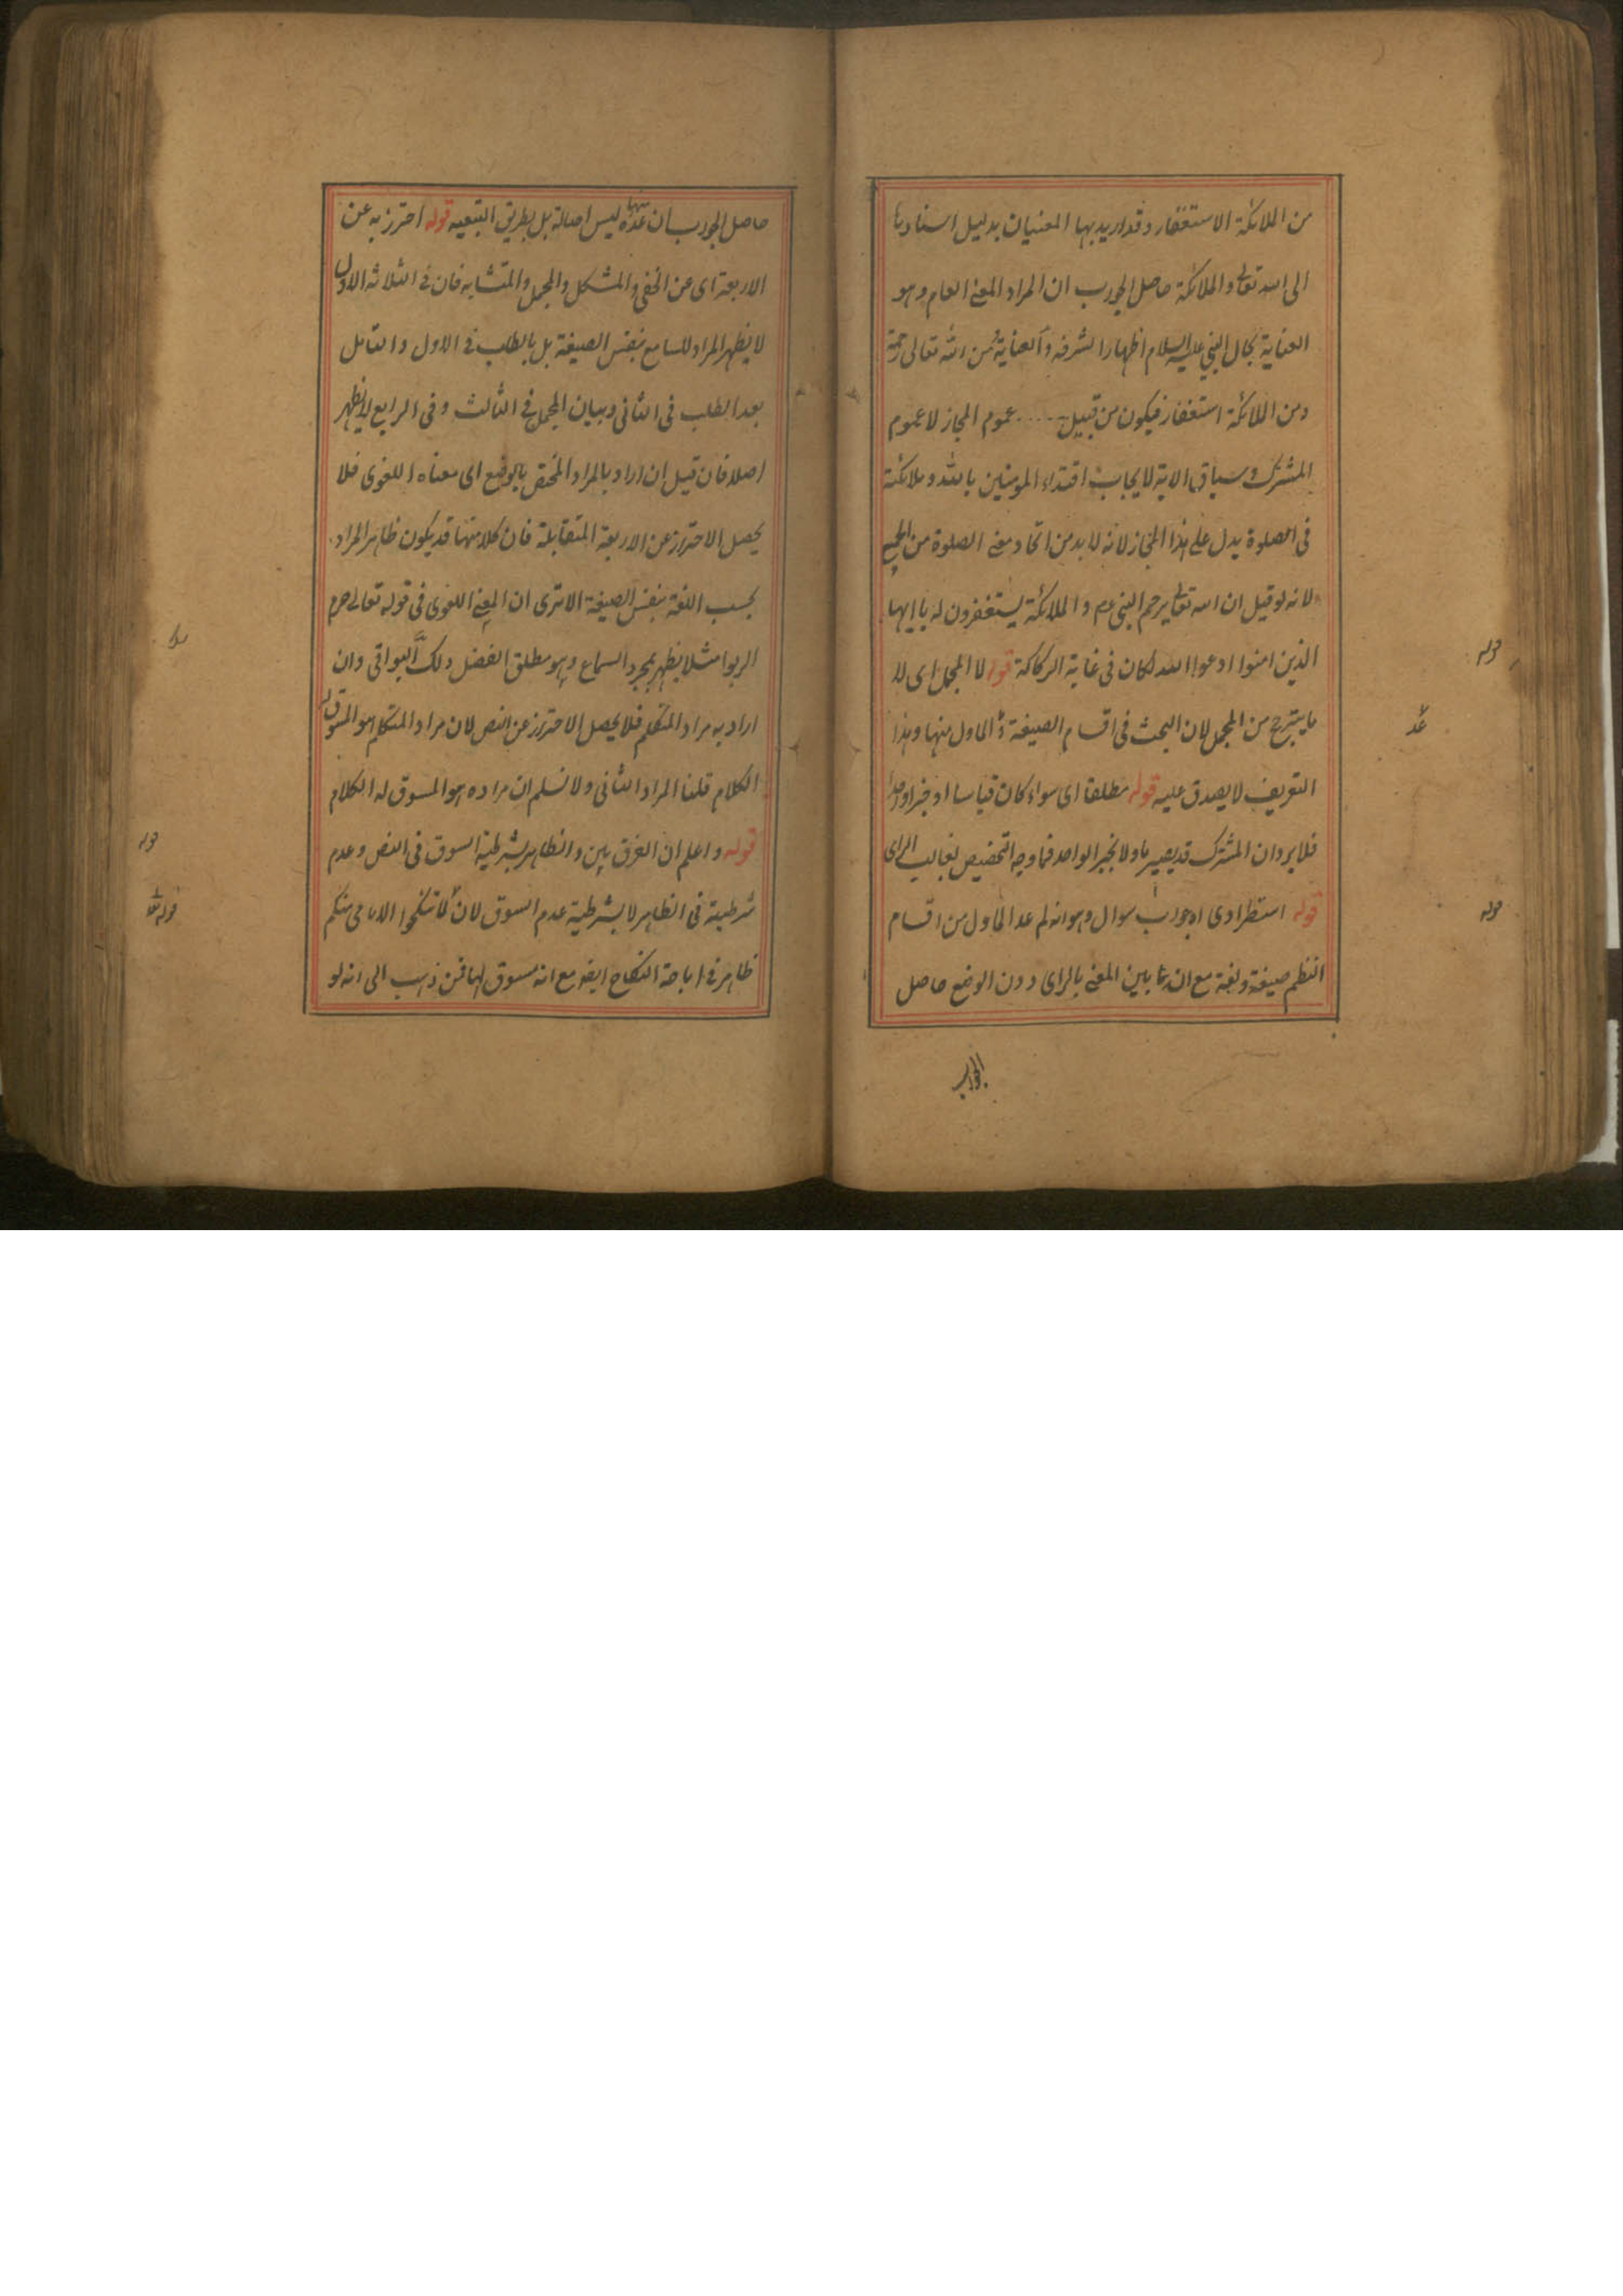 من الملائكة الاستغفار وقد اريد بها المعنيان بدليل اسنادها
الى الله تعالى والملائكة حاصل الجواب ان المراد المعنى العام وهو
العناية بحال النبي عليه السلام اظهارا لشرفه والعناية من الله تعالى رحمة
ومن الملائكة استغفار فيكون من قبيل عموم المجاز لا عموم
المشترك وسياق الاية لايجاب اقتداء المومنين بالله وملائكته
فى الصلوة يدل على هذا المجاز لانه لا بد من اتحاد معنى الصلوة من الجميع
لانه لو قيل ان الله تعالى يرحم النبي عم والملائكة يستغفرون له يا ايها
الذين امنوا ادعوا الله لكان فى غاية الركاكة قوله لا المجمل اى لا
ما يترجح من المجمل لان البحث فى اقسام الصيغة والماول منها وهذا
التعريف لا يصدق عليه قوله مطلقا اى سواء كان قياسا او خبر واحد
فلا يرد ان المشترك قد يصير ماولا بخبر الواحد فما وجه التخصيص بغالب الراى
قوله استطرادى اه جواب سوال وهو انه لم عد الماول من اقسام
النظم صيغة ولغة مع انه بين المعنى بالراى دون الوضع حاصل
الجواب
حاصل الجواب ان عده منها ليس اصالة بل بطريق التبعيه قوله احترز به عن
الاربعة اى عن الخفى والمشكل والمجمل والمتشابه فان فى الثلاثه الاول
لا يظهر المراد للسامع بنفس الصيغة بل بالطلب فى الاول والتامل
بعد الطلب فى الثانى وببيان المجمل فى الثالث وفى الرابع لا يظهر
اصلا فان قيل ان اراد بالمراد المختص بالوضع اى معناه اللغوى فلا
يحصل الاحتراز عن الاربعة المتقابلة فان كلا منها قد يكون ظاهر المراد
بحسب اللغة بنفس الصيغة الا ترى ان المعنى اللغوى فى قوله تعالى حرم
الربوا مثلا يظهر بمجرد السماع وهو مطلق الفضل وكذا البواقى وان
اراد به مراد المتكلم فلا يحصل الاحتراز عن النص لان مراد المتكلم هو المسوق له
الكلام قلنا المراد الثانى ولا نسلم ان مراده هو المسوق له الكلام
قوله واعلم ان الفرق بين والظاهر بشرطية السوق فى النص وعدم
شرطيته فى الظاهر لا بشرطية عدم السوق لان لا تنكحوا الايامى منكم
ظاهر فى اباحة النكاح ايضا مع انه مسوق لها فمن ذهب الى انه لو
قوله
قوله
قوله
قوله